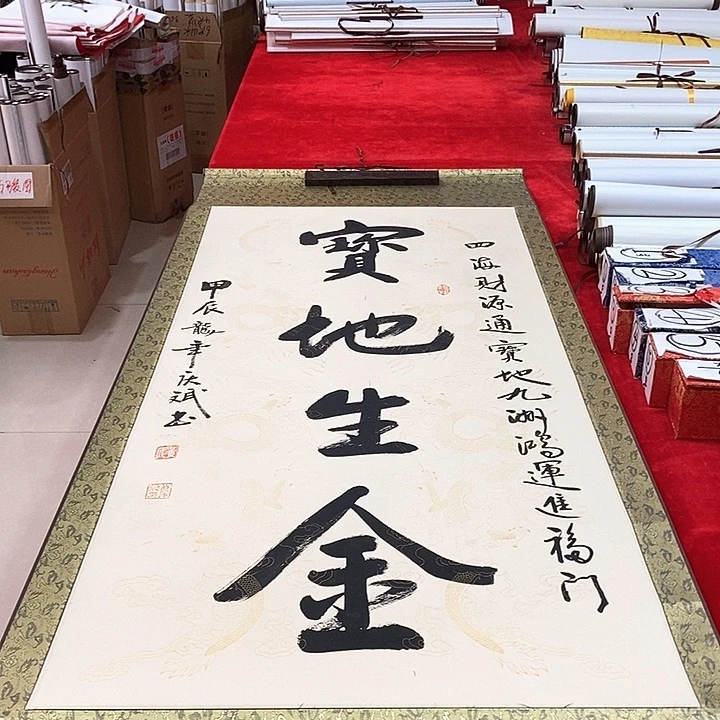 四海财源通寶地九洲鴻運進福门
寶地生金
甲辰龍年庆斌书